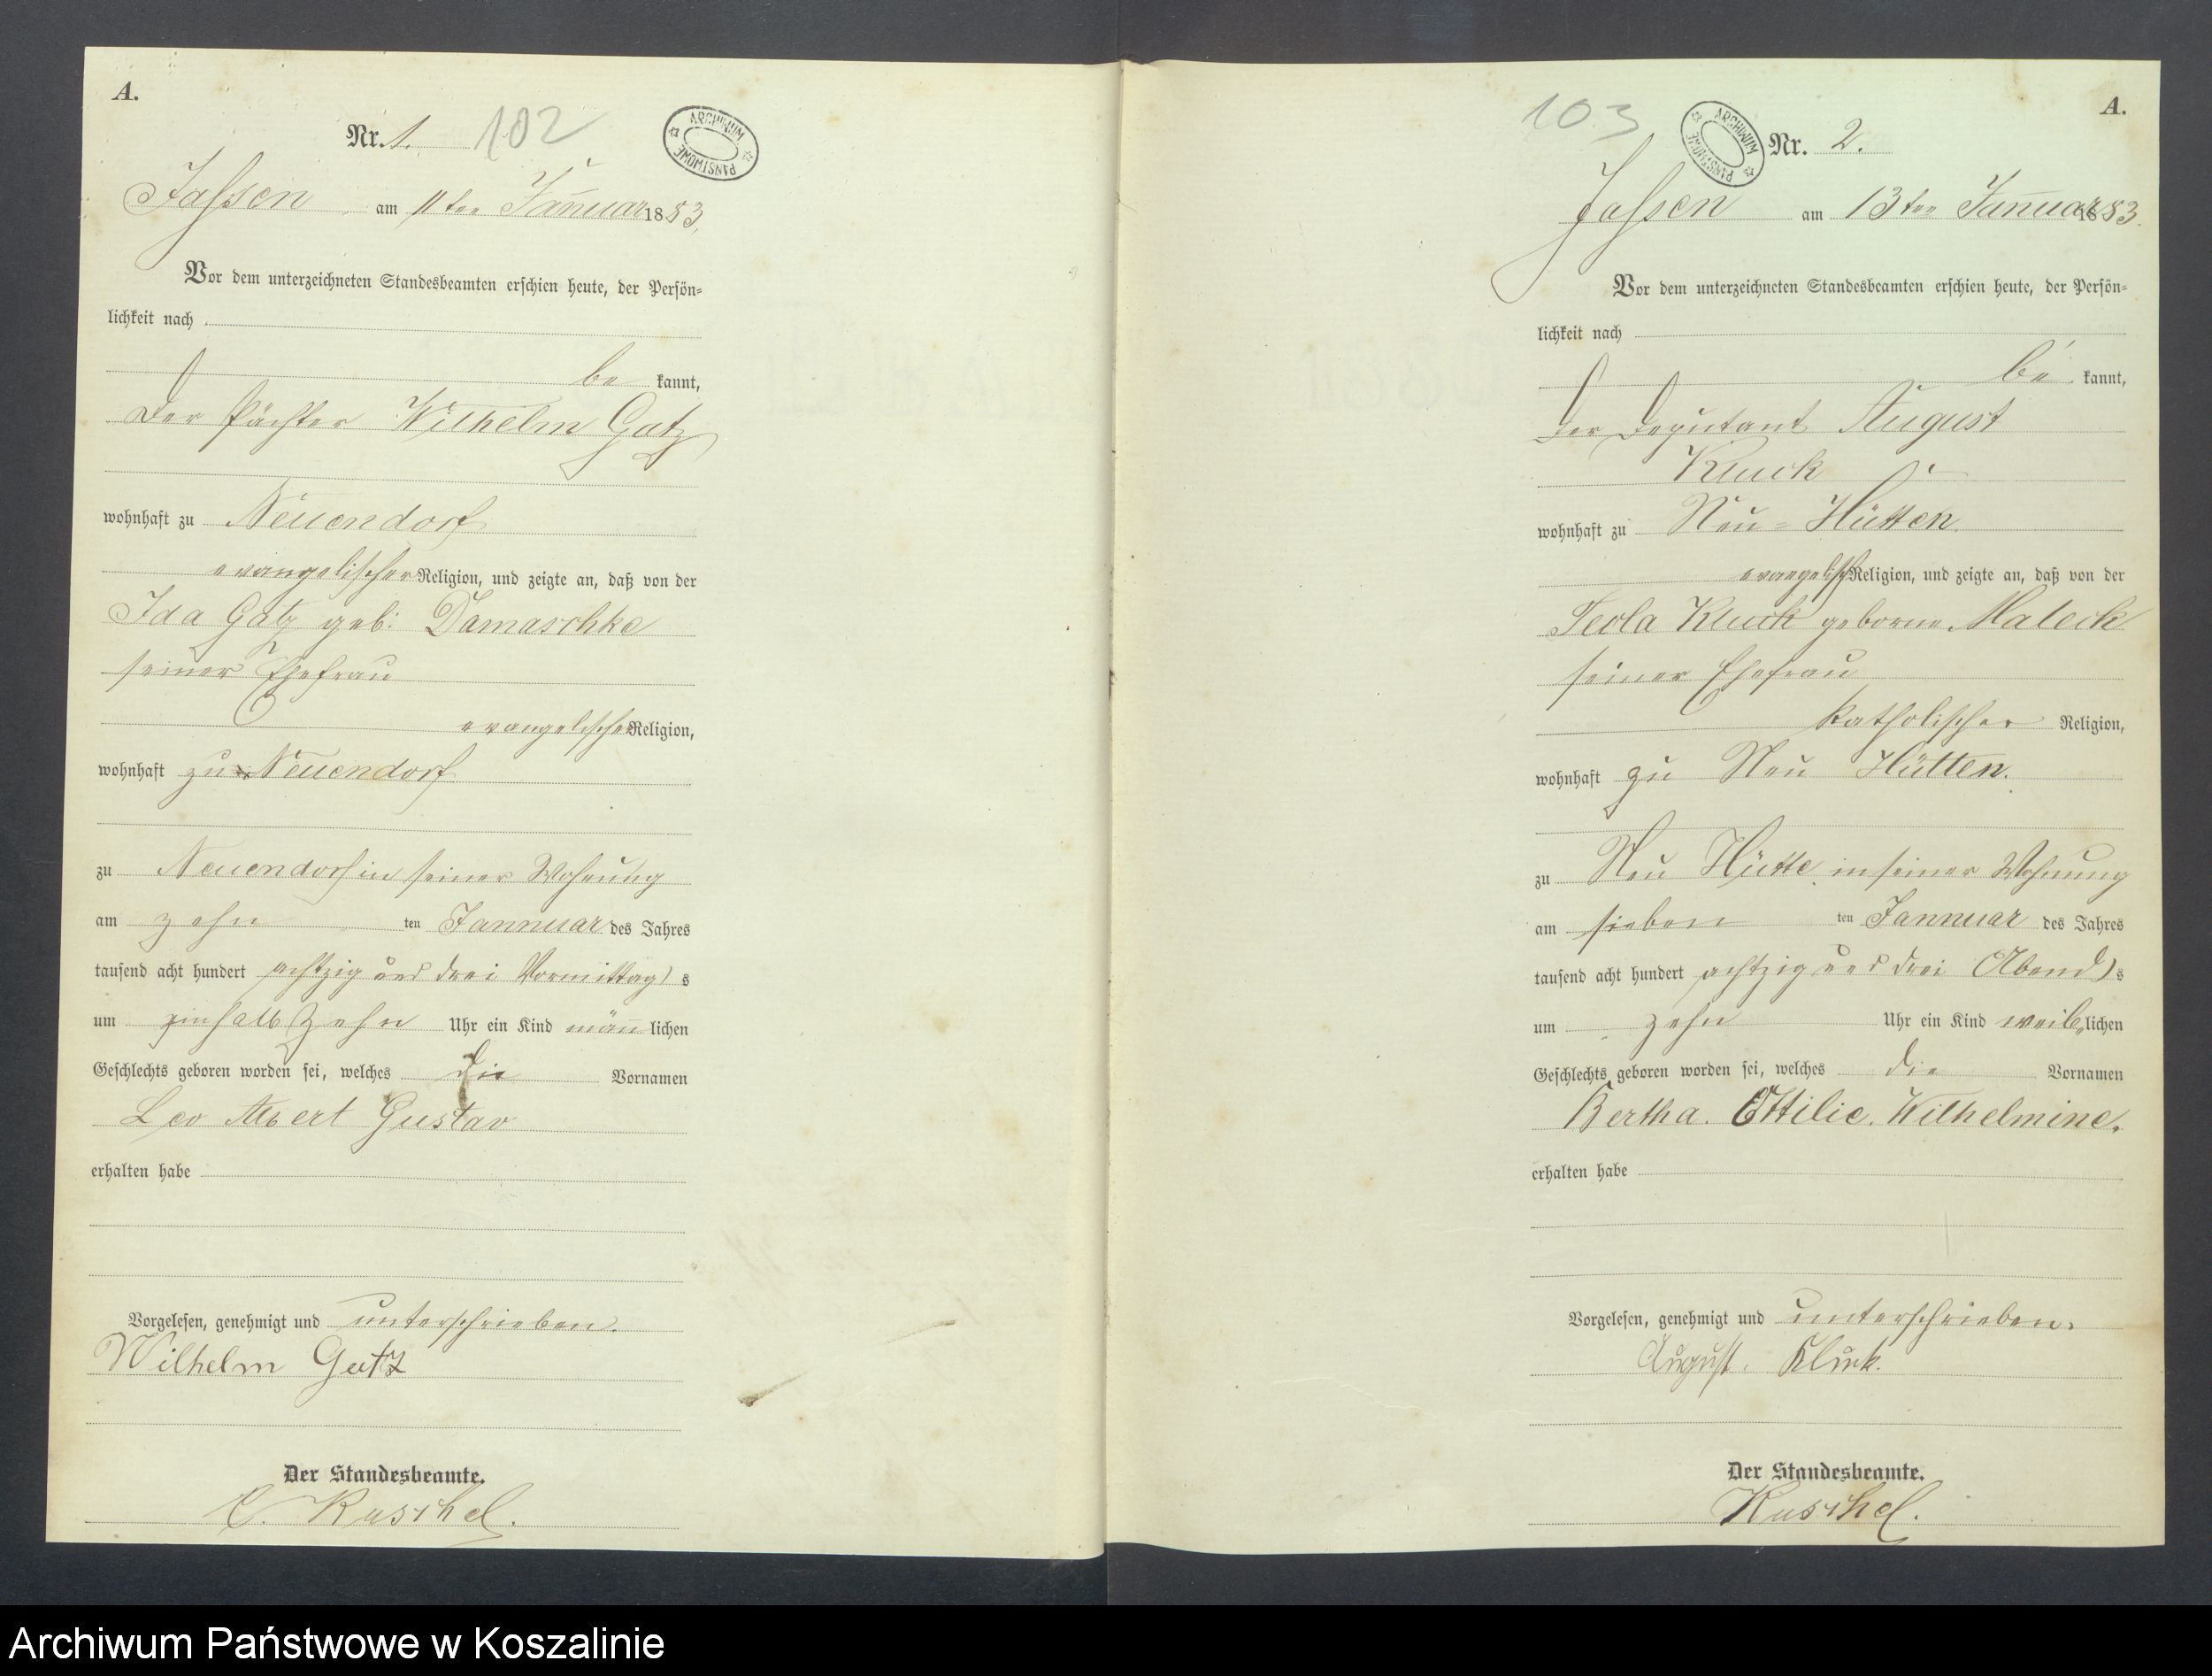 A.
Nr. 1. 102
ARCHIWUM PAŃSTWOWE
Jassen am 11ten Januar 1883.
Vor dem unterzeichneten Standesbeamten erschien heute, der Persön-
lichkeit nach
be kannt,
Der Pächter Wilhelm Gatz
wohnhaft zu Neuendorf
evangelischer Religion, und zeigte an, daß von der
Ida Gatz geb: Damaschke
seiner Ehefrau
evangelischer Religion,
wohnhaft zu Neuendorf
zu Neuendorf in seiner Wohnung
am zehn ten Jannuar des Jahres
tausend acht hundert achtzig und drei Vormittag s
um einhalb zehn Uhr ein Kind männ lichen
Geschlechts geboren worden sei, welches die Vornamen
Leo Albert Gustav
erhalten habe
Vorgelesen, genehmigt und unterschrieben.
Wilhelm Gatz
Der Standesbeamte.
C. Kuschel.
A.
103 Nr. 2.
ARCHIWUM PAŃSTWOWE
Jassen am 13ten Januar 1883.
Vor dem unterzeichneten Standesbeamten erschien heute, der Persön-
lichkeit nach
be kannt,
Der Deputant August
Kluck
wohnhaft zu Neu-Hütten
evangelisch Religion, und zeigte an, daß von der
Kluck geborne Maleck
seiner Ehefrau
katholischer Religion,
wohnhaft zu Neu Hütten.
zu Neu Hütte in seiner Wohnung
am sieben ten Jannuar des Jahres
tausend acht hundert achtzig und drei Abend s
um zehn Uhr ein Kind weib lichen
Geschlechts geboren worden sei, welches die Vornamen
Bertha. Ottilie. Wilhelmine.
erhalten habe
Vorgelesen, genehmigt und unterschrieben.
August. Kluck.
Der Standesbeamte.
Kuschel.
Archiwum Państwowe w Koszalinie